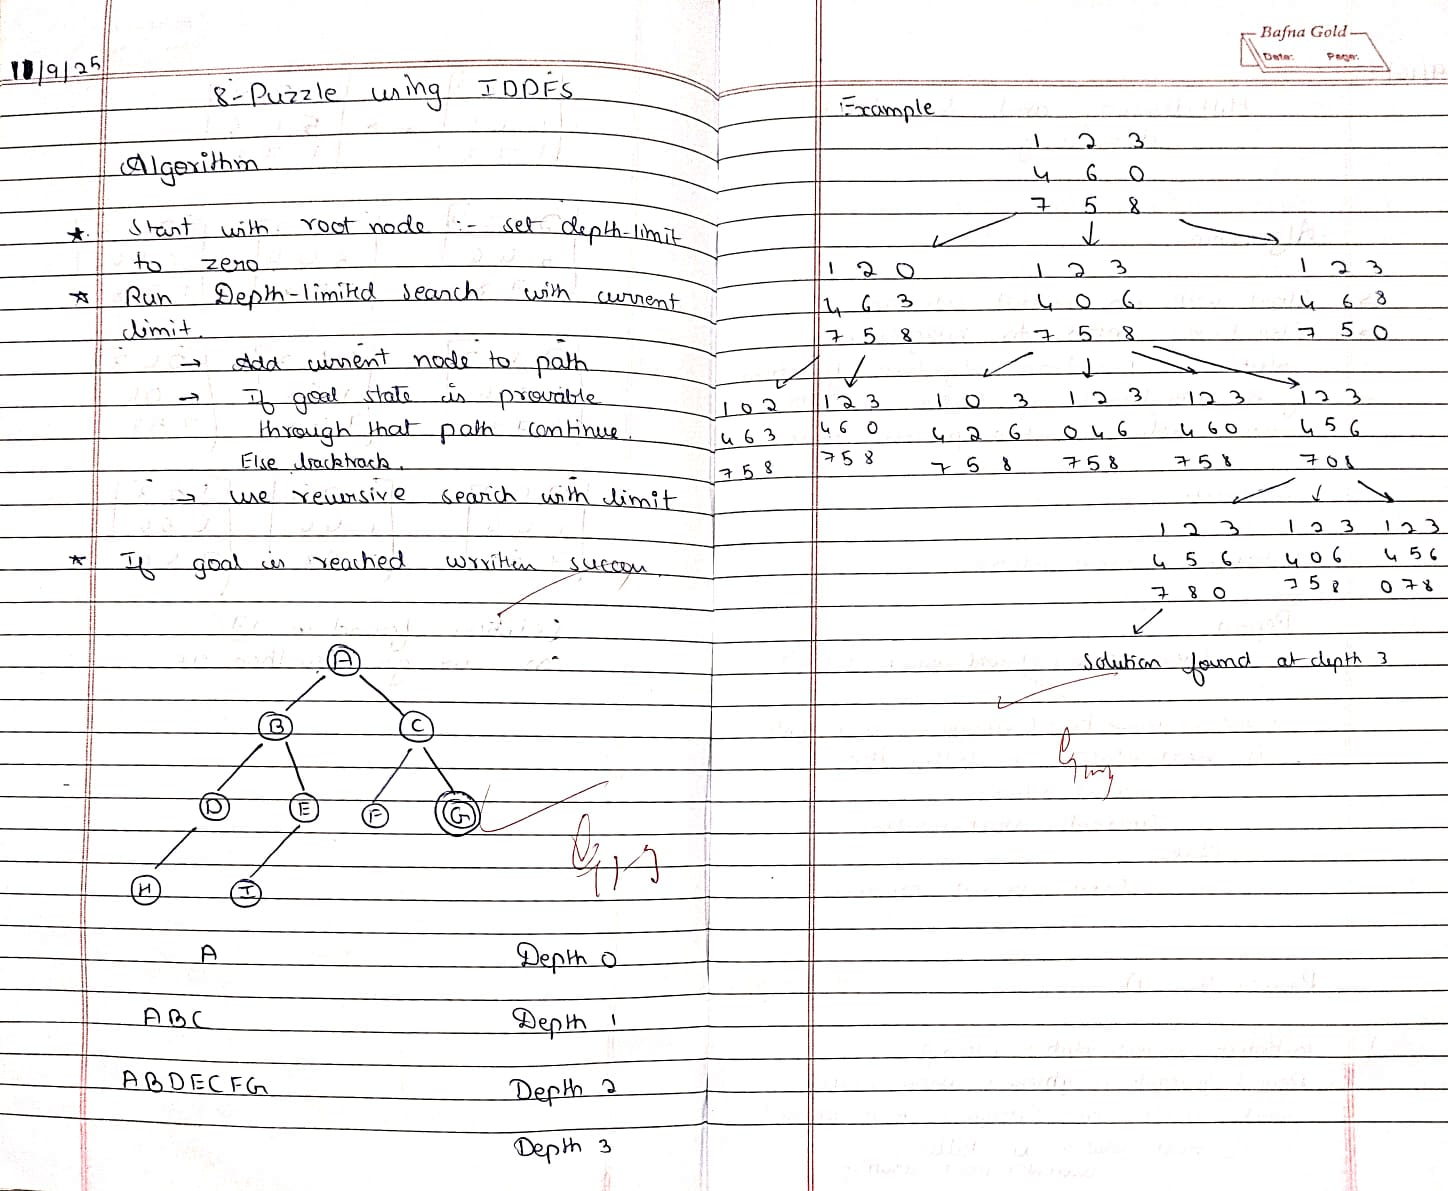 11/9/25
8-Puzzle using IDDFS
Algorithm
★. Start with root node :- set depth-limit
to zero
★ Run Depth-limited search with current
limit.
→ Add current node to path
→ If goal state is provable
through that path continue.
Else backtrack.
→ use recursive search with limit
★ If goal is reached written success
A
B C
D E F G
H I
A Depth 0
ABC Depth 1
ABDECFG Depth 2
Depth 3
Bafna Gold
Date: Page:
Example
1 2 3
4 6 0
7 5 8
1 2 0 1 2 3 1 2 3
4 6 3 4 0 6 4 6 8
7 5 8 7 5 8 7 5 0
1 0 2 1 2 3 1 0 3 1 2 3 1 2 3 1 2 3
4 6 3 4 6 0 4 2 6 0 4 6 4 6 0 4 5 6
7 5 8 7 5 8 7 5 8 7 5 8 7 5 8 7 0 8
1 2 3 1 2 3 1 2 3
4 5 6 4 0 6 4 5 6
7 8 0 7 5 8 0 7 8
Solution found at depth 3